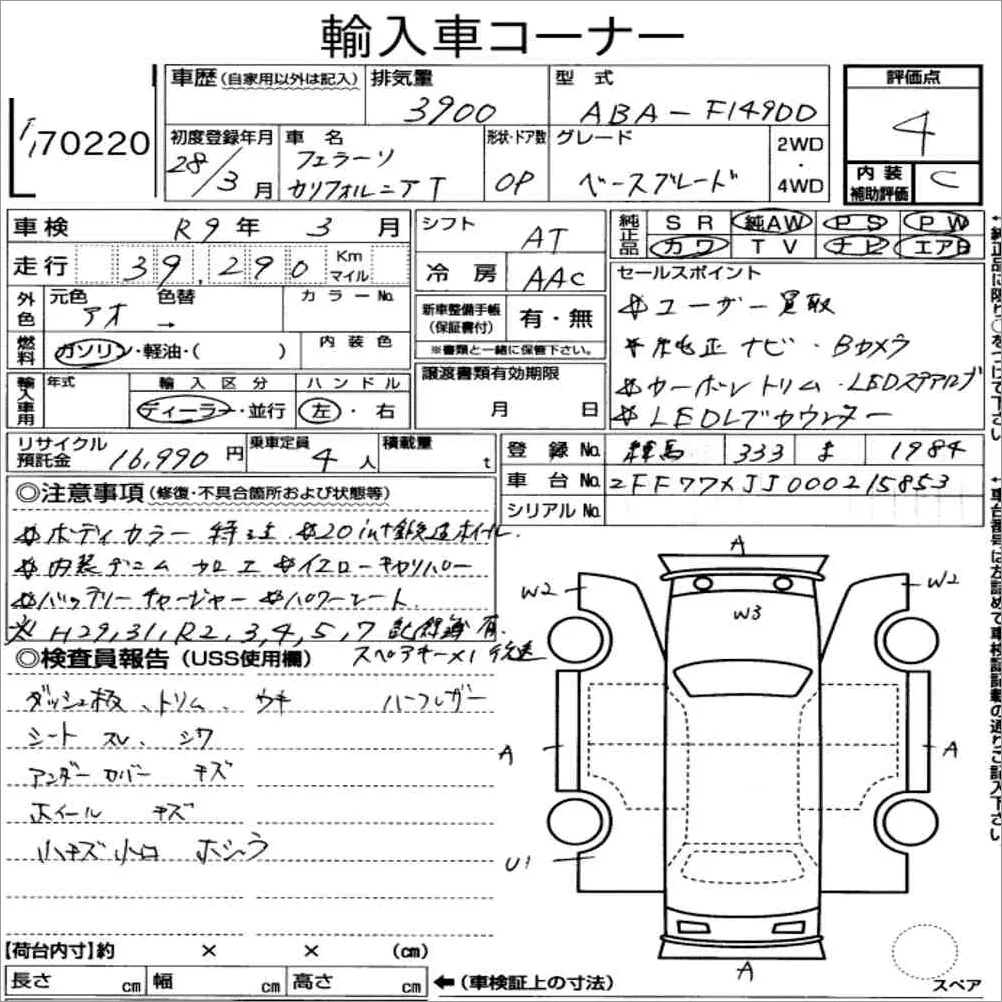 輸入車コーナー
車歴 (自家用以外は記入)
排気量
3900
型式
ABA-F149DD
評価点
4
170220
初度登録年月
28/3月
車名
フェラーリ
カリフォルニアT
形状・ドア数
OP
グレード
ベースグレード
2WD
・
4WD
内装
補助評価
C
車検
R9年 3月
走行
39,290
Km
マイル
シフト
AT
冷房
AAC
純正品
SR 純AW PS PW
カワ TV ナビ エアB
外色
元色
アオ
色替
→
カラーNo.
燃料
ガソリン・軽油・( )
内装色
新車整備手帳
(保証書付)
有・無
※書類と一緒に保管下さい。
セールスポイント
ユーザー買取
純正ナビ・Bカメラ
カーボントリム・LEDステアリング
LEDレブカウンター
輸入車用
年式
輸入区分
ディーラー・並行
ハンドル
左・右
譲渡書類有効期限
月 日
リサイクル
預託金
16,990円
乗車定員
4人
積載量
t
登録No.
群馬 333 ま 1984
車台No.
ZFF77XJJ000215853
シリアルNo.
◎注意事項 (修復・不具合箇所および状態等)
ボディカラー 特注 20inch鍛造ホイール
内装デニム カロエ イエローキャリパー
バッテリーチャージャー パワーシート
H29,31,R2,3,4,5,7 記録簿有
スペアキー×1 後送
◎検査員報告 (USS使用欄)
ダッシュ板、トリム、ウキ ハーフレザー
シート スレ、シワ
アンダーカバー キズ
ホイール キズ
小キズ 小凹
A
W2
W3
W2
A
A
U1
A
スペア
【荷台内寸】約 × × (cm)
長さ cm 幅 cm 高さ cm ←(車検証上の寸法)
↑純正品に限り○をつけて下さい
↑車台番号は左詰めで車検証記載の通りご記入下さい